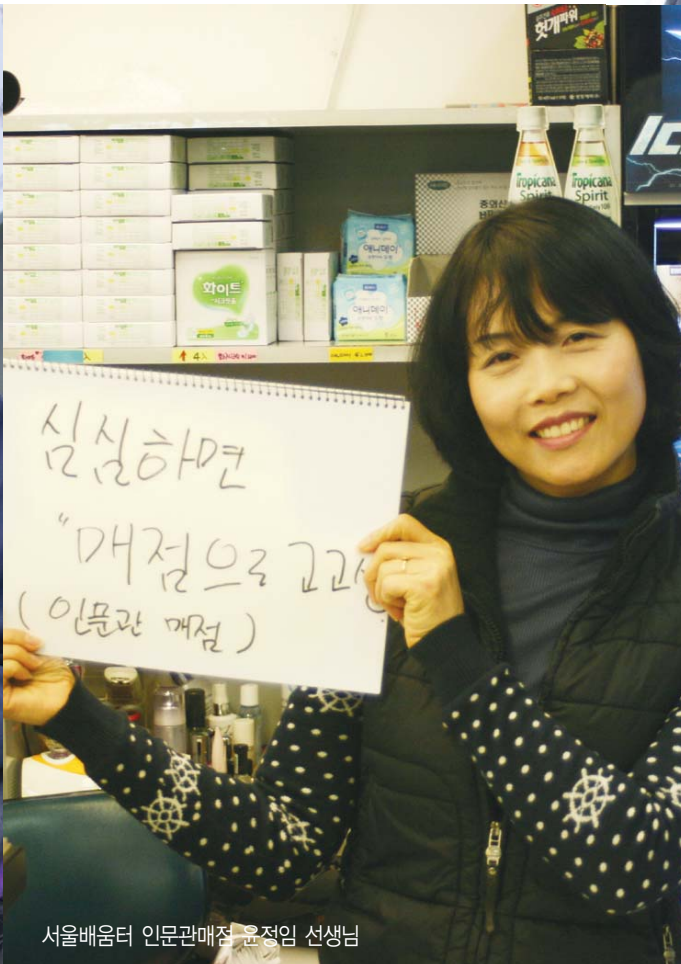 헛개파워
Tropicana
Spirit
Tropicana
Spirit
화이트
애니데이
애니데이
심심하면
"매점으로 고고씽
(인문관 매점)
서울배움터 인문관매점 윤정임 선생님